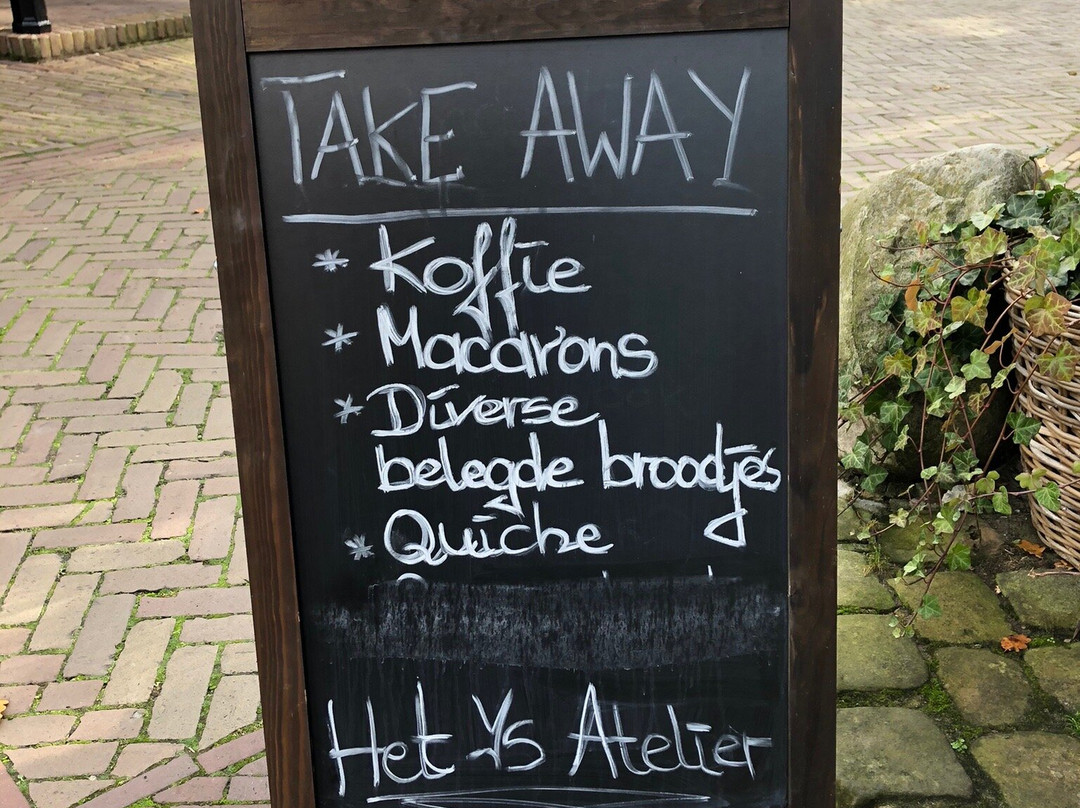 TAKE AWAY
* Koffie
* Macarons
* Diverse
belegde broodjes
* Quiche
Het Ys Atelier